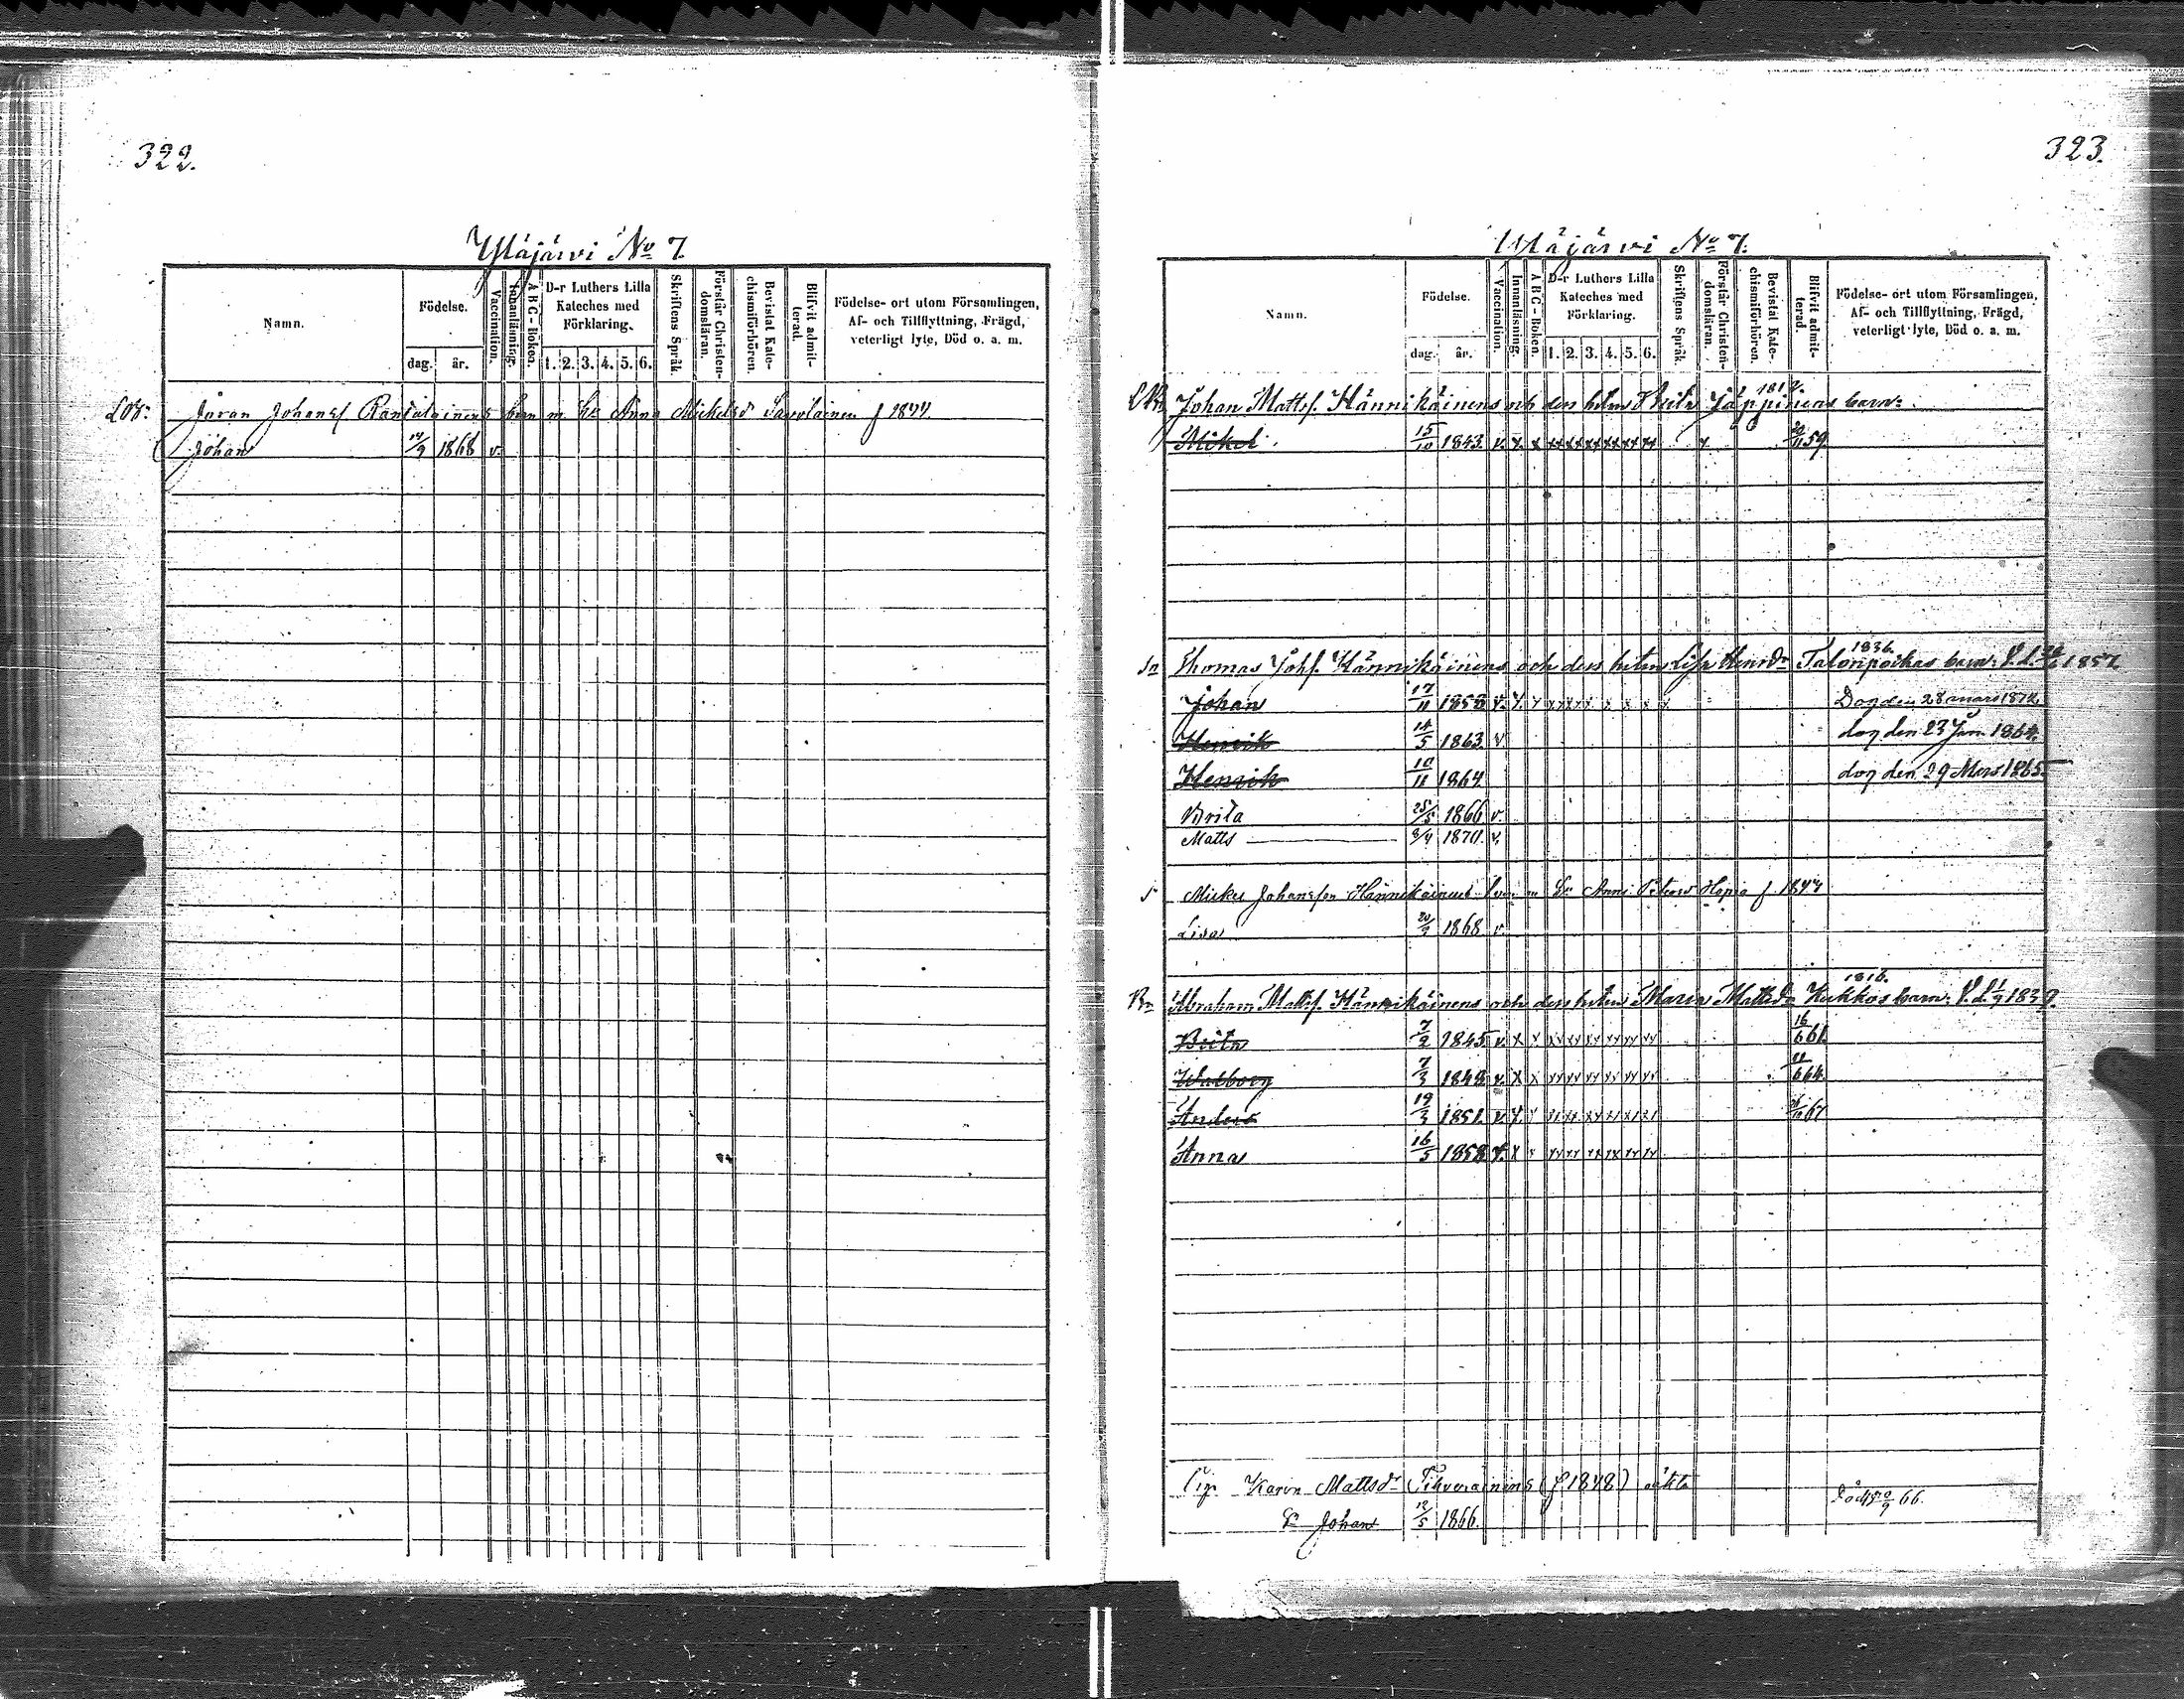 322.
Yläjärvi No 7.
Namn.
Födelse.
dag.
år.
Vaccination.
Innanläsning.
A B C - Boken.
D-r Luthers Lilla Kateches med Förklaring.
1. 2. 3. 4. 5. 6.
Skriftens Språk.
Förstår Christendomsläran.
Bevistat Katechismiförhören.
Blifvit admitterad.
Födelse- ort utom Församlingen, Af- och Tillflyttning, Frägd, veterligt lyte, Död o. a. m.
Jöran Johansf Rantalainens barn m. h. Anna Michelsd Savolainen f 1844
Johan 14/9 1868 v.
323.
Yläjärvi No 7.
Namn.
Födelse.
dag.
år.
Vaccination.
Innanläsning.
A B C - Boken.
D-r Luthers Lilla Kateches med Förklaring.
1. 2. 3. 4. 5. 6.
Skriftens Språk.
Förstår Christendomsläran.
Bevistat Katechismiförhören.
Blifvit admitterad.
Födelse- ort utom Församlingen, Af- och Tillflyttning, Frägd, veterligt lyte, Död o. a. m.
Johan Mattsf. Hännikäinens och dess hustru Jäppinens barn:
Mikel 15/10 1843. v. x x xx xx xx xx xx xx x 59.
1836.
Sn Thomas Johsf. Hännikäinens och dess hustru Lisa Henrdr Talonpoikas barn: 1857.
Johan 17/11 1858 v. x x Dog den 28 mars 1872.
Henrik 14/5 1863 v dog den 23 Jan. 1864.
Henrik 10/11 1864. dog den 29 Mars 1865.
Brita 25/5 1866 v.
Matts 8/4 1870. v.
Johansson Hännikäinens barn m Anna Petersd Hopia f 1844
Lisa 1868 v.
1816.
Bn Abraham Mattsf. Hännikäinens och dess hustru Maria Mattsdr Kukkos barn: 1839.
Brita 7/2 1845 v. x x xx xx xx xx xx xx 16/6 61.
Walborg 7/3 1848 v. x x xx xx xx xx xx xx 64.
Anders 19/3 1851. v. x 67
Anna 16/5 1858 v. x xx xx xx xx xx xx
Karin Mattsdr (f 1848) oäkta
Johan 12/5 1866. Död 66.